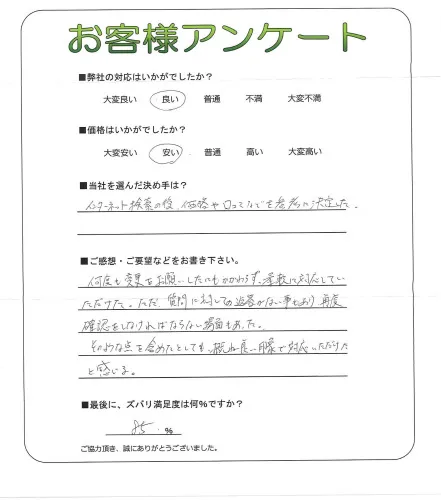 お客様アンケート
■弊社の対応はいかがでしたか?
大変良い 良い 普通 不満 大変不満
■価格はいかがでしたか?
大変安い 安い 普通 高い 大変高い
■当社を選んだ決め手は?
インターネット検索の後、価格や口コミなどを参考に決定した。
■ご感想・ご要望などをお書き下さい。
何度も変更をお願いしたにもかかわらず、柔軟に対応してい
ただけた。ただ、質問に対しての返答がない事もあり再度
確認をしなければならない場面もあった。
そのような点を含めたとしても、概ね良い印象で対応いただけた
と感じる。
■最後に、ズバリ満足度は何%ですか?
85 %
ご協力頂き、誠にありがとうございました。